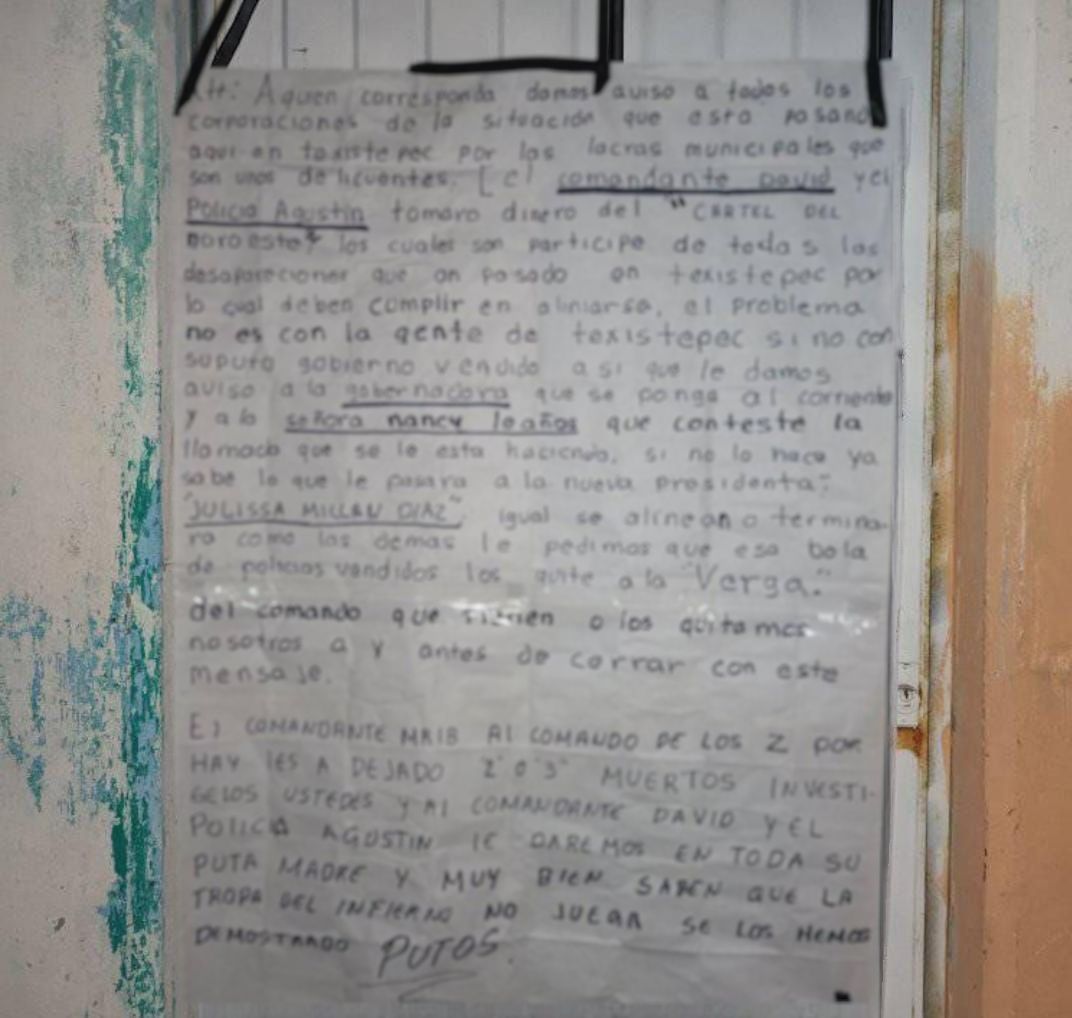 Att: A quien corresponda damos aviso a todos los
corporaciones de la situación que esta pasando
aqui en texistepec por las lacras municipales que
son unos delicuentes. [el comandante David y el
Policia Agustin tomaro dinero del "CARTEL DEL
noroeste" los cuales son participe de todas las
desapareciones que an pasado en texistepec por
lo cual deben cumplir en aliniarse, el problema
no es con la gente de texistepec si no con
suputo gobierno vendido asi que le damos
aviso a la gobernadora que se ponga al corriente
y a la señora nancy leaños que conteste la
llamado que se le esta haciendo, si no lo hace ya
sabe lo que le pasara a la nueva presidenta:
"JULISSA MILLAN DIAZ" igual se alinean o termina-
ra como las demas le pedimos que esa bola
de policias vendidos los quite a la "Verga."
del comando que tienen o los quitamos
nosotros a y antes de corrar con este
mensaje.
El COMANDANTE MAIB Al COMANDO DE LOS Z POR
HAY LES A DEJADO 2 "O" 3" MUERTOS INVESTI-
GELOS USTEDES Y Al COMANDANTE DAVID Y EL
POLICIA AGUSTIN lE DAREMOS EN TODA SU
PUTA MADRE Y MUY BIEN SABEN QUE LA
TROPA DEL INFIERNO NO JUEGA SE LOS HEMOS
DEMOSTRADO PUTOS.